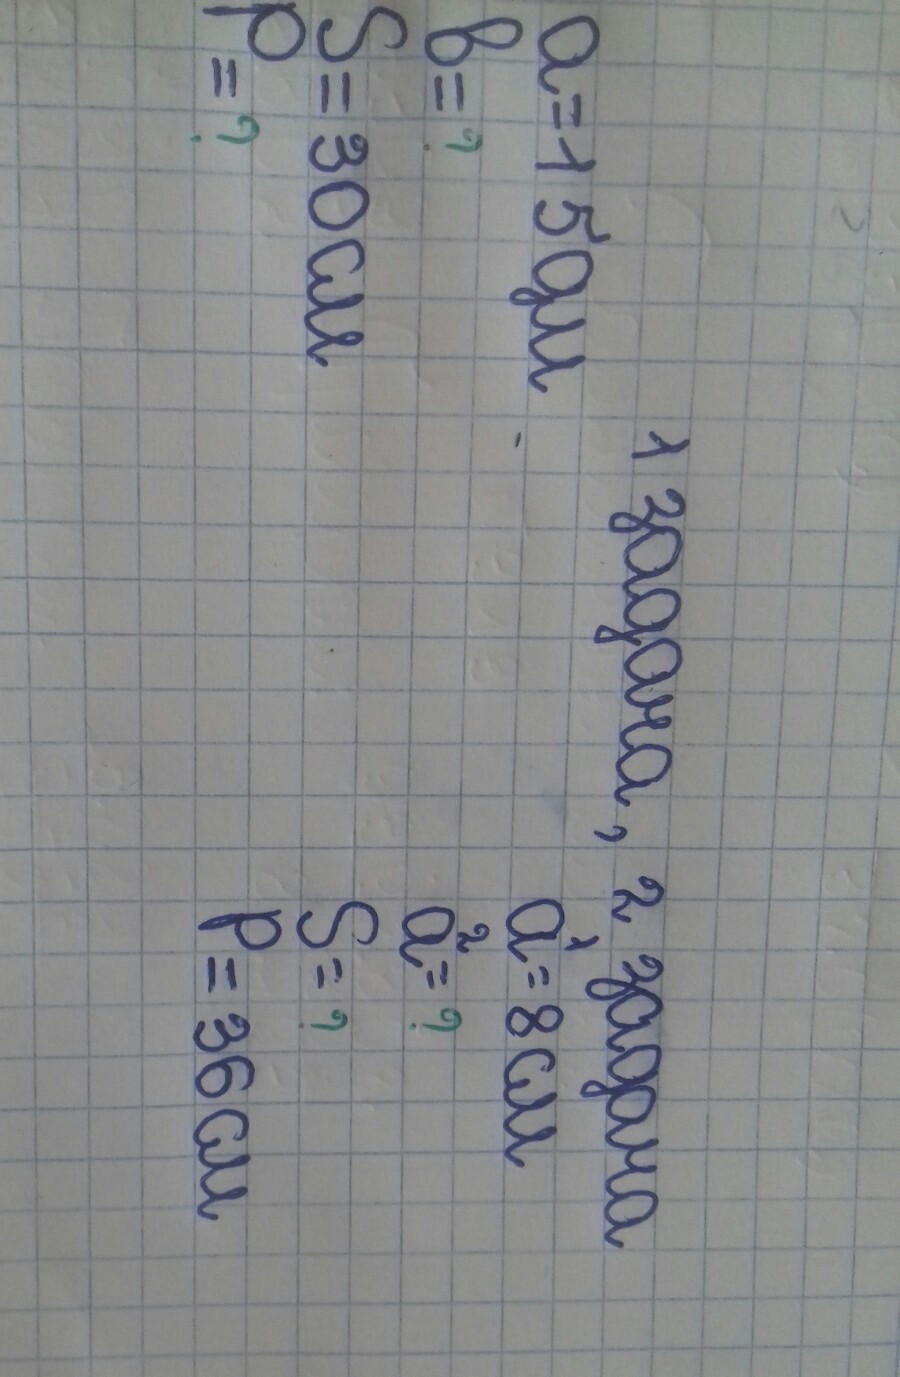 1 задача, 2 задача
a=15дм
в=?
S=30см
P=?
a¹=8см
a²=?
S=?
P=36см